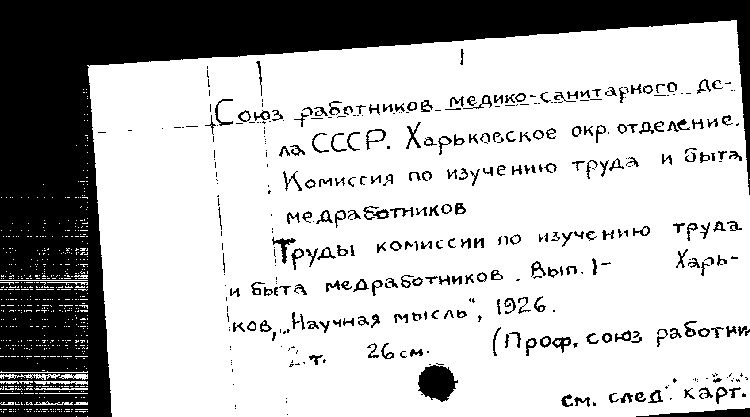 Союз работников медико-санитарного де-
ла СССР. Харьковское окр. отделение.
Комиссия по изучению труда и быта
медработников
Труды комиссии по изучению труда
и быта медработников. Вып. 1- Харь-
ков, „Научная мысль", 1926.
2 т. 26 см. (Проф. союз работни
см. след. карт.